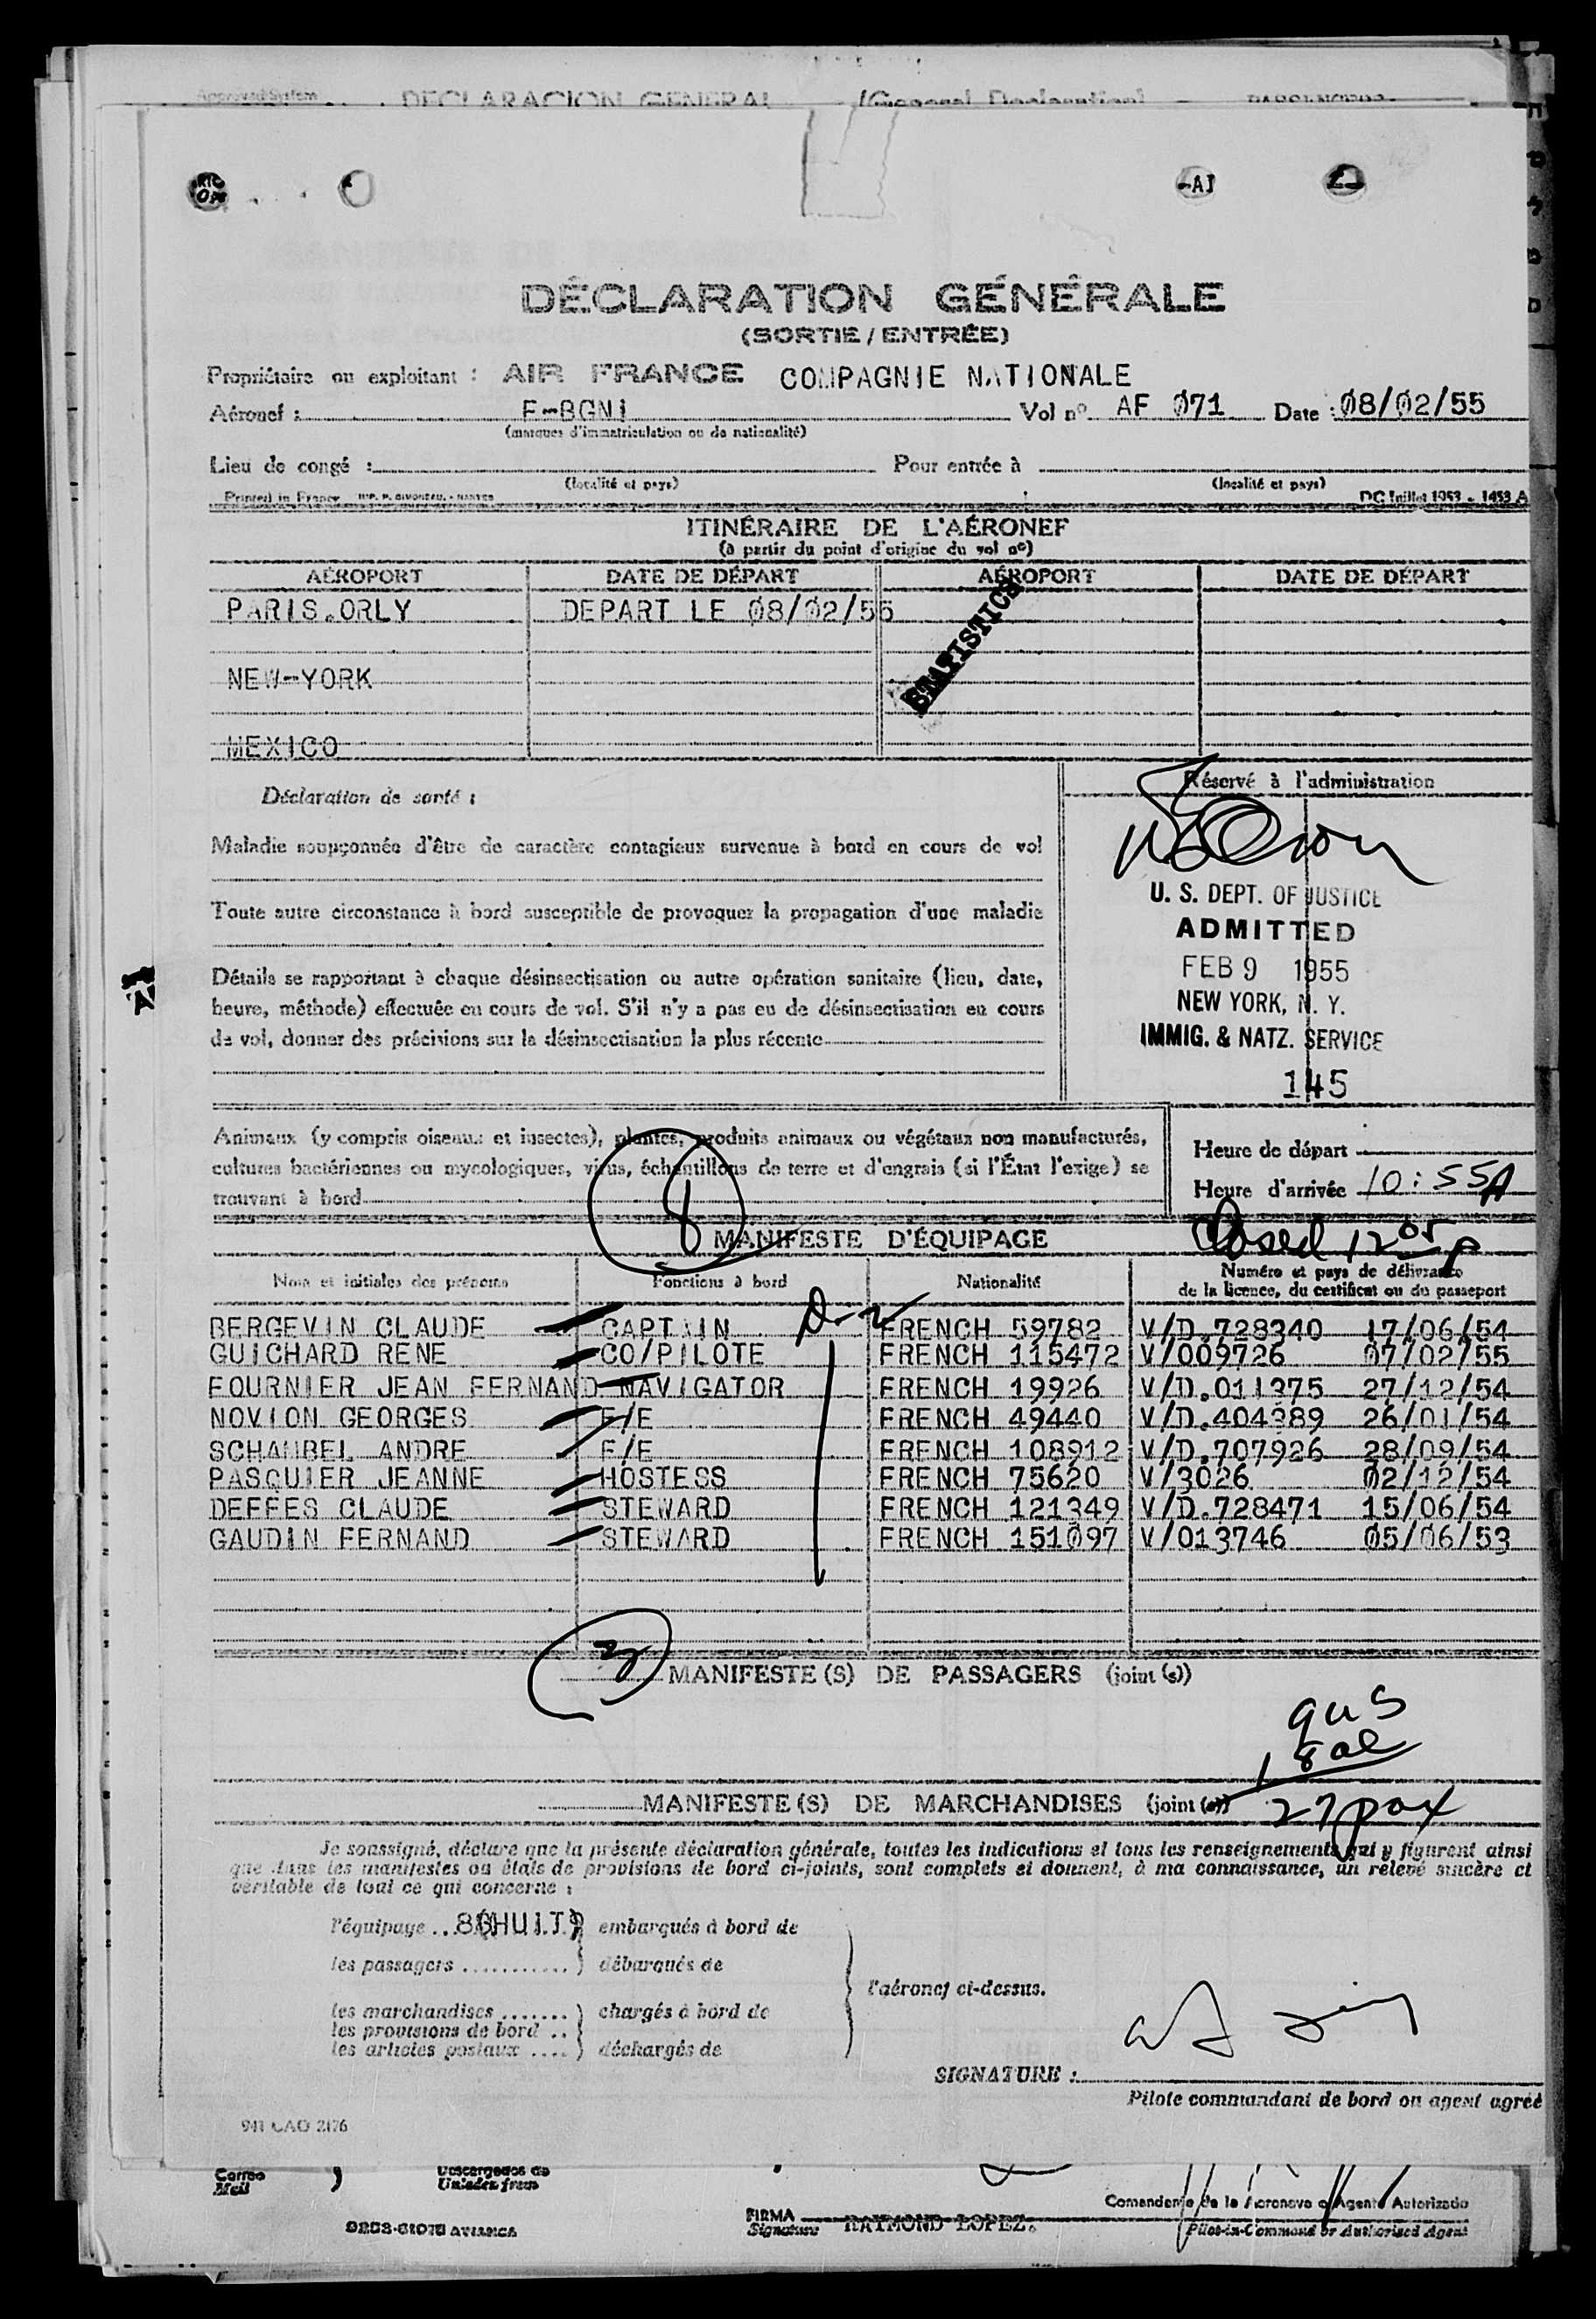 Approved System DECLARACION GENERAL (General Declaration)
-AI
DÉCLARATION GÉNÉRALE
(SORTIE / ENTRÉE)
Propriétaire ou exploitant : AIR FRANCE COMPAGNIE NATIONALE
Aéronef : F-BGNI Vol nº AF Ø71 Date : Ø8/Ø2/55
(marques d'immatriculation ou de nationalité)
Lieu de congé : Pour entrée à
(localité et pays) (localité et pays)
Printed in France DC Juillet 1953 - 1453 A
ITINÉRAIRE DE L'AÉRONEF
(à partir du point d'origine du vol nº)
AÉROPORT DATE DE DÉPART AÉROPORT DATE DE DÉPART
PARIS.ORLY DEPART LE Ø8/Ø2/55
STATISTICS
NEW-YORK
MEXICO
Réservé à l'administration
Déclaration de santé :
Maladie soupçonnée d'être de caractère contagieux survenue à bord en cours de vol
Toute autre circonstance à bord susceptible de provoquer la propagation d'une maladie
Détails se rapportant à chaque désinsectisation ou autre opération sanitaire (lieu, date,
heure, méthode) effectuée en cours de vol. S'il n'y a pas eu de désinsectisation en cours
de vol, donner des précisions sur la désinsectisation la plus récente
U. S. DEPT. OF JUSTICE
ADMITTED
FEB 9 1955
NEW YORK, N. Y.
IMMIG. & NATZ. SERVICE
145
Animaux (y compris oiseaux et insectes), plantes, produits animaux ou végétaux non manufacturés,
cultures bactériennes ou mycologiques, virus, échantillons de terre et d'engrais (si l'État l'exige) se
trouvant à bord
Heure de départ
Heure d'arrivée 10:55A
8
MANIFESTE D'ÉQUIPAGE Closed 12 05 p
Nom et initiales des prénoms Fonctions à bord Nationalité Numéro et pays de délivrance
de la licence, du certificat ou du passeport
BERGEVIN CLAUDE CAPTAIN FRENCH 59782 V/D.728340 17/06/54
GUICHARD RENE CO/PILOTE FRENCH 115472 V/009726 Ø7/02/55
FOURNIER JEAN FERNAND NAVIGATOR FRENCH 19926 V/D.011375 27/12/54
NOVION GEORGES F/E FRENCH 49440 V/D.404389 26/01/54
SCHAUBEL ANDRE F/E FRENCH 108912 V/D.707926 28/09/54
PASQUIER JEANNE HOSTESS FRENCH 75620 V/3026 Ø2/12/54
DEFFES CLAUDE STEWARD FRENCH 121349 V/D.728471 15/06/54
GAUDIN FERNAND STEWARD FRENCH 151Ø97 V/013746 Ø5/Ø6/53
3
MANIFESTE(S) DE PASSAGERS (joint (s))
9 US
18 al
MANIFESTE(S) DE MARCHANDISES (joint (s)) 27 pax
Je soussigné, déclare que la présente déclaration générale, toutes les indications et tous les renseignements qui y figurent ainsi
que dans les manifestes ou états de provisions de bord ci-joints, sont complets et donnent, à ma connaissance, un relevé sincère et
véritable de tout ce qui concerne :
l'équipage 8(HUIT) embarqués à bord de
les passagers débarqués de
l'aéronef ci-dessus.
les marchandises chargés à bord de
les provisions de bord
les articles postaux déchargés de
SIGNATURE :
Pilote commandant de bord ou agent agréé
941 CAO 2176
Correo
Mail
Descargados de
Unladen from
FIRMA
Signature RAYMOND LOPEZ.
Comandante de la Aeronave o Agente Autorizado
Pilot-in-Command or Authorized Agent
AVIANCA